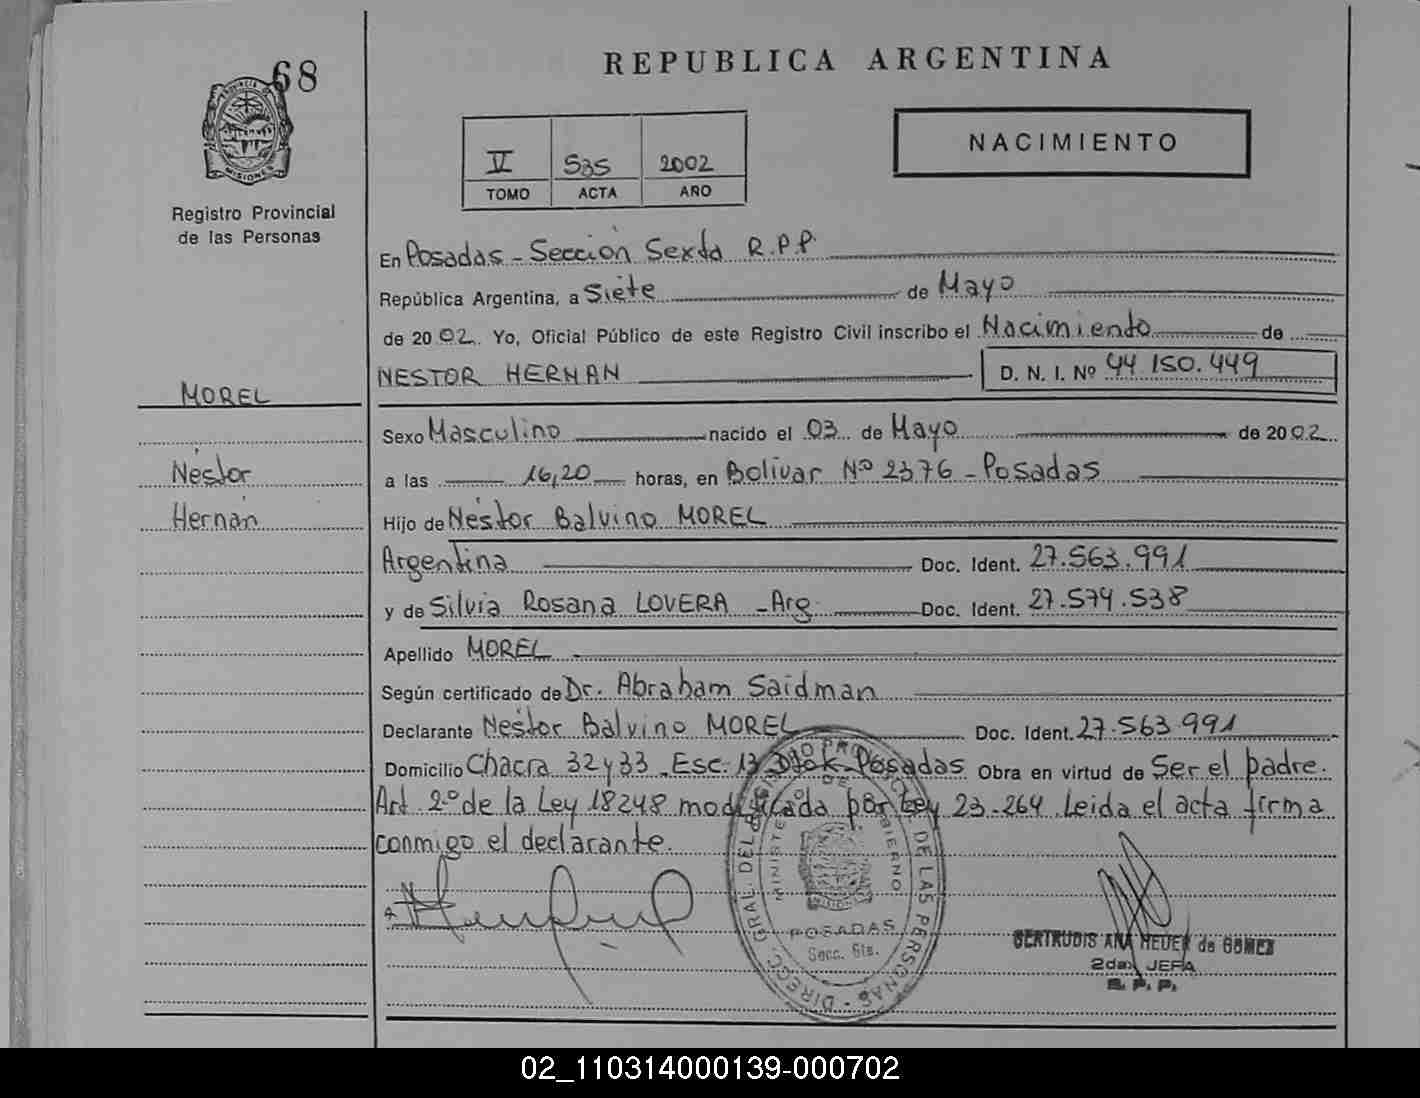 68
REPUBLICA ARGENTINA
PROVINCIA DE
MISIONES
Registro Provincial
de las Personas
V 535 2002
TOMO ACTA AÑO
NACIMIENTO
En Posadas - Sección Sexta R.P.P.
República Argentina, a Siete de Mayo
de 2002. Yo, Oficial Público de este Registro Civil inscribo el Nacimiento de
NESTOR HERNAN D. N. I. Nº 44 150.449
MOREL
Néstor
Hernán
Sexo Masculino nacido el 03 de Mayo de 2002
a las 16,20 horas, en Bolívar Nº 2376 - Posadas
Hijo de Néstor Balvino MOREL
Argentina Doc. Ident. 27.563.991
y de Silvia Rosana LOVERA - Arg. Doc. Ident. 27.574.538
Apellido MOREL
Según certificado de Dr. Abraham Saidman
Declarante Néstor Balvino MOREL Doc. Ident. 27.563.991
Domicilio Chacra 32 y 33 - Esc. 13 Posadas Obra en virtud de Ser el padre.
Art. 2º de la Ley 18248 modificada por Ley 23-264. Leida el acta firma
conmigo el declarante.
DIRECC. GRAL. DEL REGISTRO PROVINCIAL DE LAS PERSONAS
MINISTERIO DE GOBIERNO
MISIONES
POSADAS
Secc. 6ta.
GERTRUDIS ANA HEUER de GOMEZ
2da. JEFA
R. P. P.
02_110314000139-000702